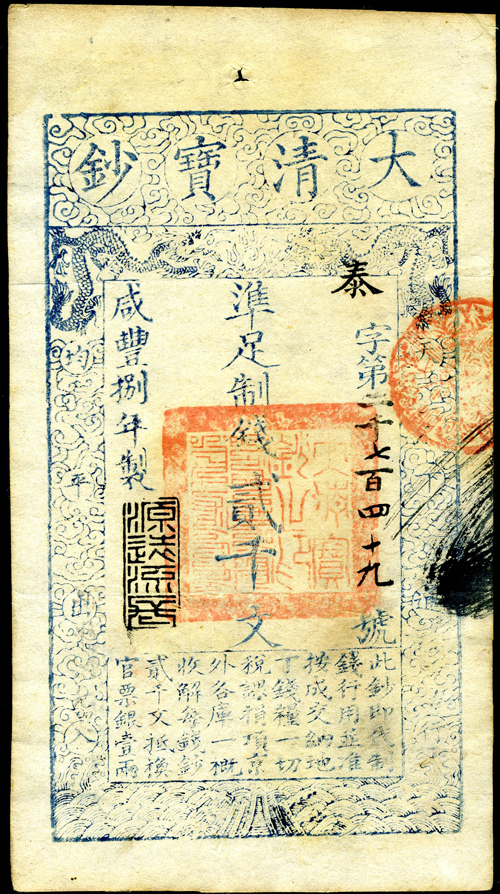 大清寶鈔
天下通行
泰字第二千七百四十九號
準足制錢貳千文
咸豐捌年製
均平出入
此鈔即代制
錢行用並准
按成交納地
丁錢糧一切
稅課捐項京
外各庫一概
收解每錢鈔
貳千文抵換
官票銀壹兩
大清寶鈔之印